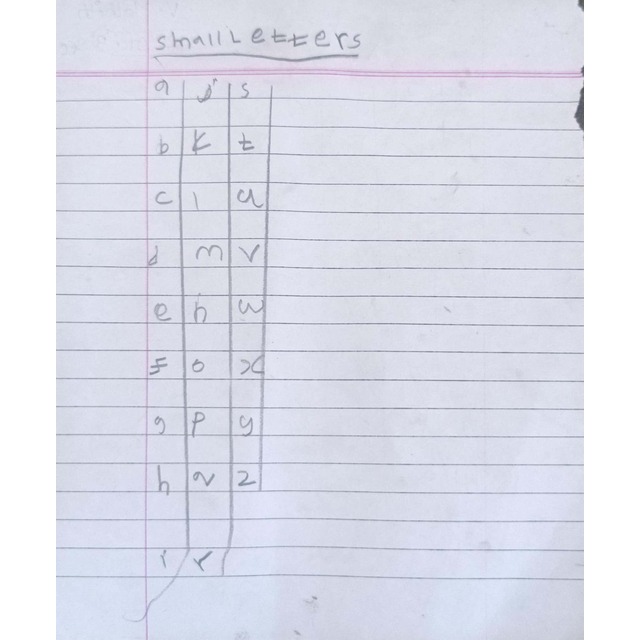 small Letters
a j s
b k t
c l u
d m v
e n w
f o x
g p y
h q z
i r